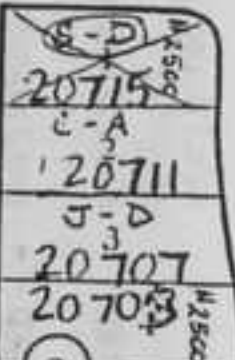 S - D
20715
N2500
C - A
5
20711
J - D
3
20707
20703
N2500